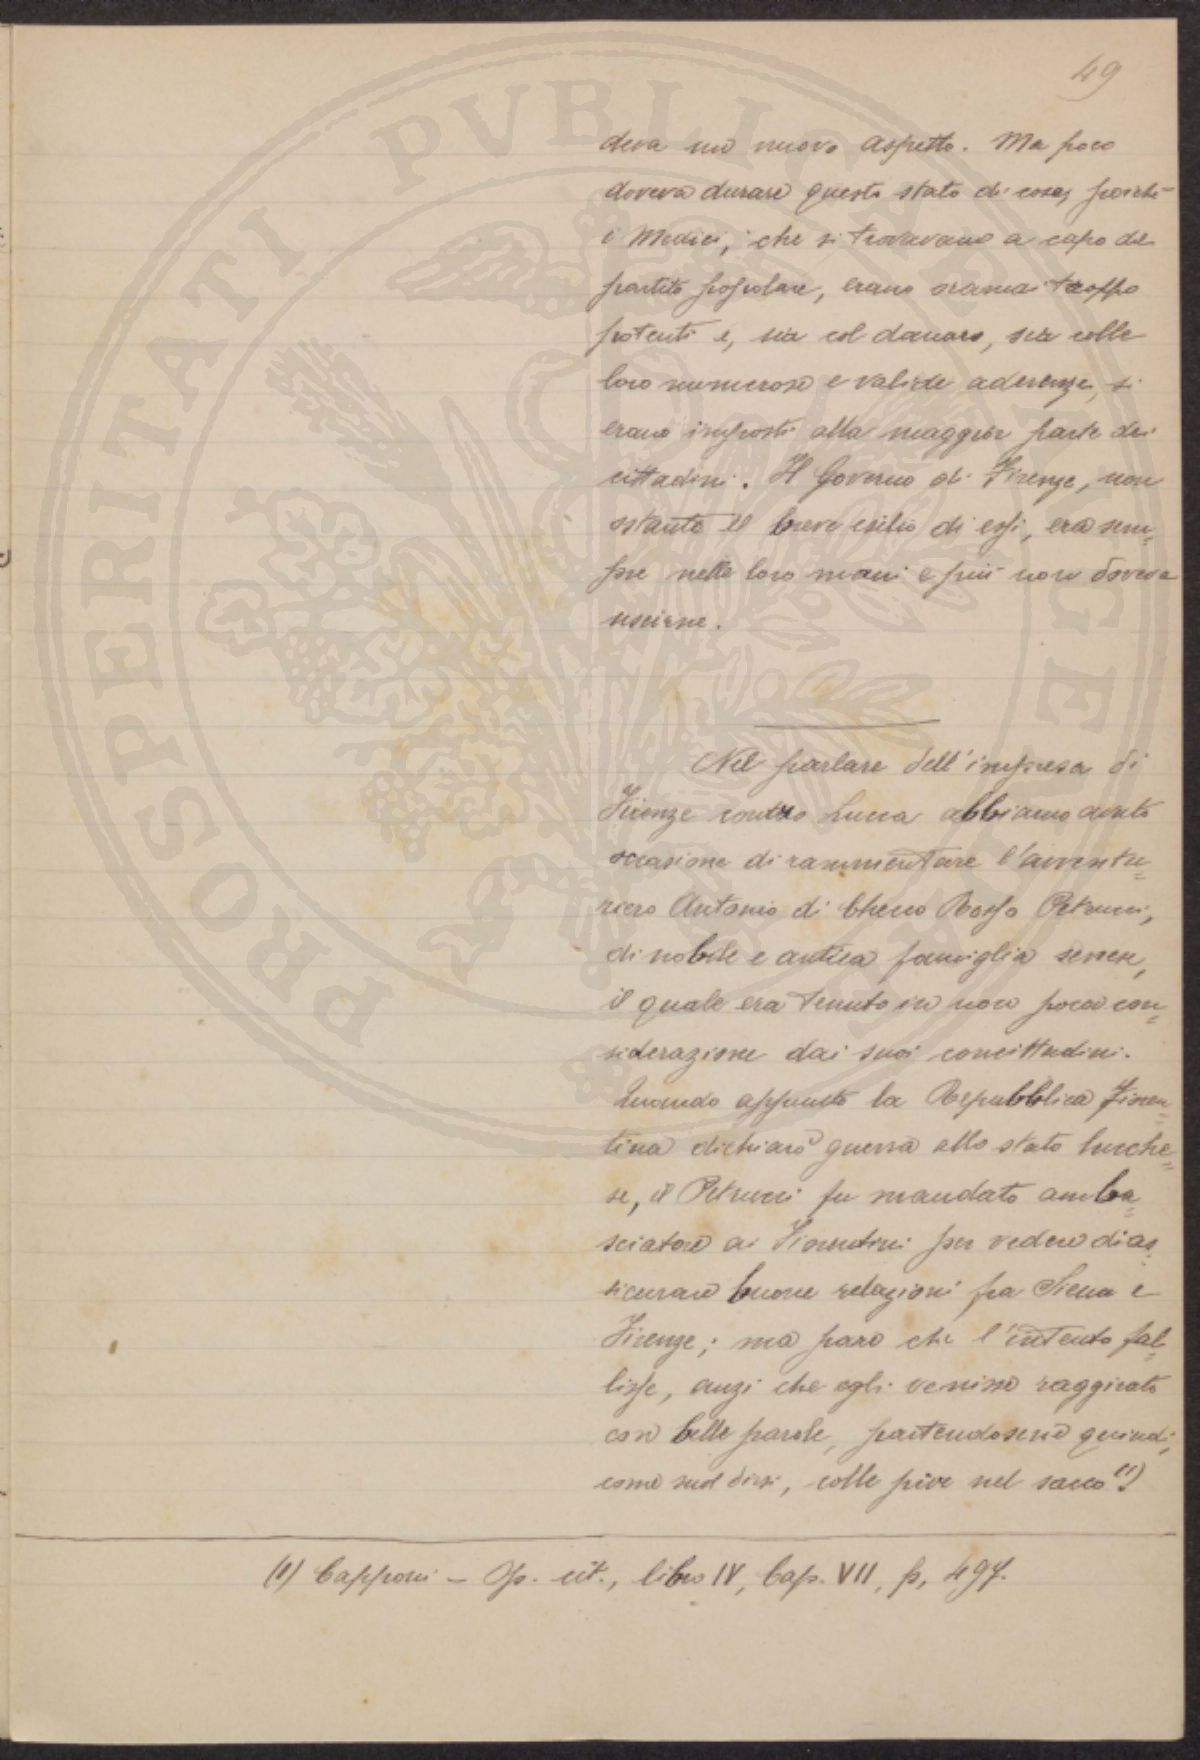 49
deva un nuovo aspetto. Ma poco
doveva durare questo stato di cose, poichè
i Medici, che si trovavano a capo del
partito popolare, erano oramai troppo
potenti e, sia col danaro, sia colle
loro numerose e valide aderenze, si
erano imposti alla maggior parte dei
cittadini. Il Governo di Firenze, non
ostante il breve esilio di essi, era sem=
pre nelle loro mani e più non doveva
uscirne.
Nel parlare dell'impresa di
Firenze contro Lucca abbiamo avuto
occasione di rammentare l'avventu=
riero Antonio di Checco Rosso Petrucci,
di nobile e antica famiglia senese,
il quale era tenuto in non poca con=
siderazione dai suoi concittadini.
Quando appunto la Repubblica Fioren=
tina dichiarò guerra allo stato lucche=
se, il Petrucci fu mandato amba=
sciatore ai Fiorentini per vedere di as=
sicurare buone relazioni fra Siena e
Firenze; ma pare che l'intento fal=
lisse, anzi che egli venisse raggirato
con belle parole, partendosene quindi,
come suol dirsi, colle pive nel sacco (1)
(1) Capponi - Op. cit., libro IV, Cap. VII, p. 497.
PROSPERITATI PVBLICAE AVGENDAE